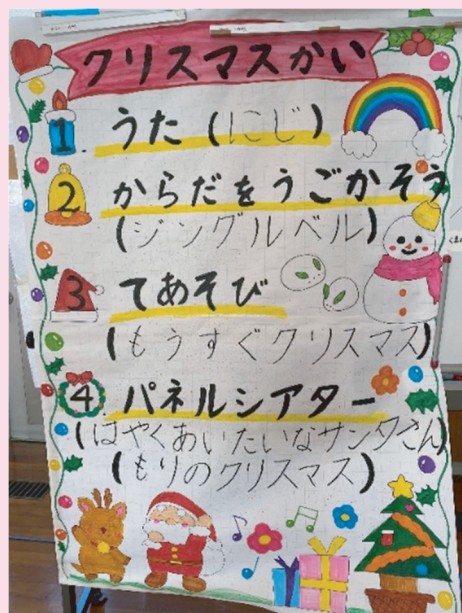 クリスマスかい
1. うた(にじ)
2 からだをうごかそう
(ジングルベル)
3 てあそび
(もうすぐクリスマス)
4 パネルシアター
(はやくあいたいなサンタさん)
(もりのクリスマス)